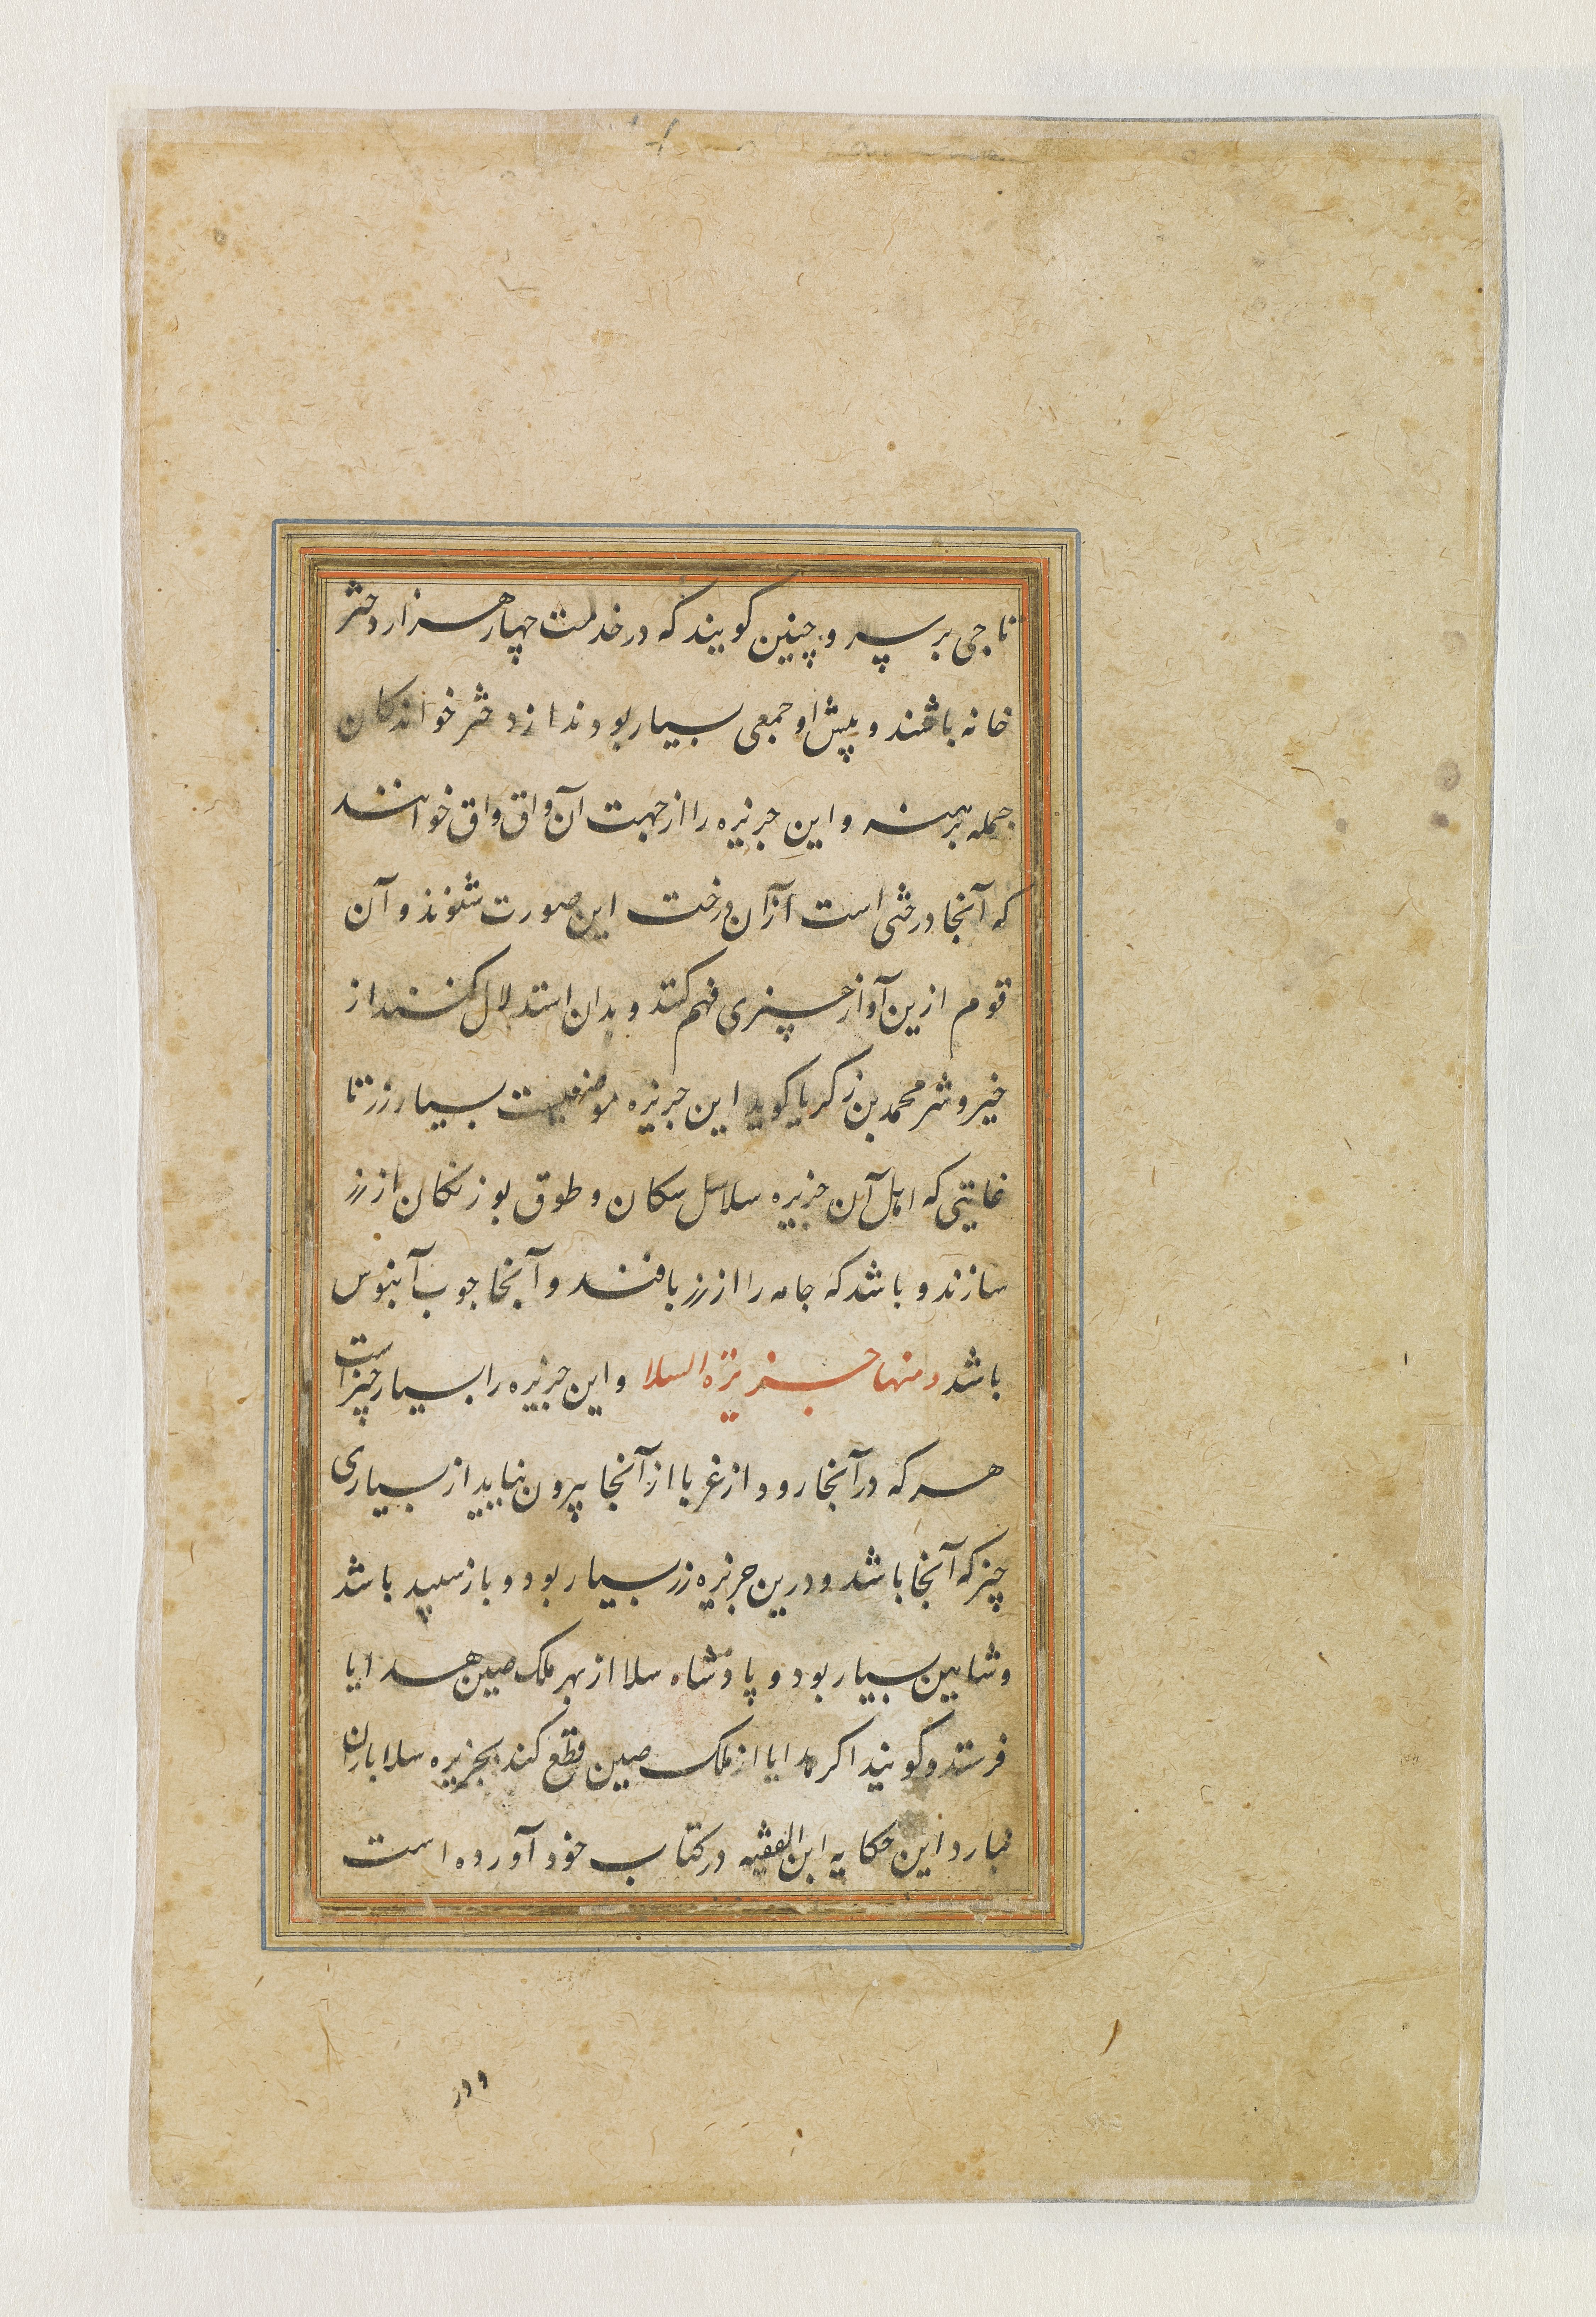 تاجی بر سر و چنین کویند که در خدمت چهار هزار دختر
خانه باشند و پیش او جمعی بسیار بودند از دختر خواندکان
جمله برهنه و این جزیره را از جهت آن واق واق خوانند
که آنجا درختی است از آن درخت این صورت شنوند و آن
قوم ازین آواز چیزی فهم کنند و بدان استدلال کنند از
خیر و شر محمد بن زکریا کوید این جزیره موضعیست بسیار زر تا
غایتی که اهل آن جزیره سلاسل سکان و طوق بوزنکان از زر
سازند و باشد که جامه را از زر بافند و آنجا چوب آبنوس
باشد ومنها جزیرة السلا و این جزیره را بسیار چیز است
هر که در آنجا رود از غربا از آنجا بیرون نیاید از بسیاری
چیز که آنجا باشد و درین جزیره زر بسیار بود و باز سپید باشد
و شاهین بسیار بود و پادشاه سلا از بهر ملک صین هدایا
فرستد و کویند اکر هدایا از ملک صین قطع کند بجزیره سلا باران
نبارد این حکایه ابن الفقیه در کتاب خود آورده است
و در